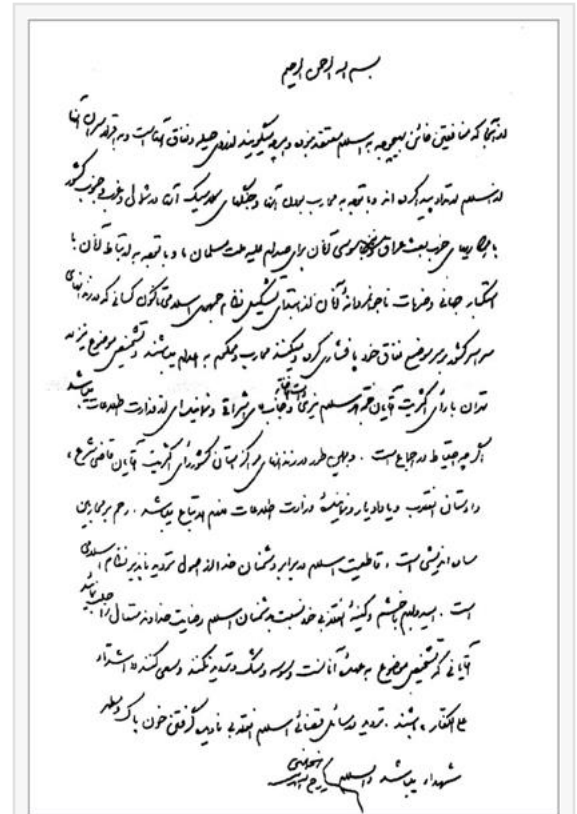 بسم الله الرحمن الرحیم
از آنجا که منافقین خائن بهیچوجه به اسلام معتقد نبوده و هرچه میگویند از روی حیله و نفاق آنهاست و به اقرار سران آنها
از اسلام ارتداد پیدا کرده‌اند و با توجه به محارب بودن آنها و جنگهای کلاسیک آنها در شمال و غرب و جنوب کشور
با همکاریهای حزب بعث عراق و نیز جاسوسی آنان برای صدام علیه ملت مسلمان ما و با توجه به ارتباط آنان با
استکبار جهانی و ضربات ناجوانمردانهٔ آنان از ابتدای تشکیل نظام جمهوری اسلامی تاکنون کسانی که در زندانهای
سراسر کشور بر سر موضع نفاق خود پافشاری کرده و میکنند محارب و محکوم به اعدام میباشند و تشخیص موضوع نیز در
تهران با رأی اکثریت آقایان حجةالاسلام نیری دامت افاضاته و جناب آقای اشراقی و نماینده‌ای از وزارت اطلاعات میباشد
اگرچه احتیاط در اجماع است . و همین طور در زندانهای مراکز استان کشور رأی اکثریت آقایان قاضی شرع ،
دادستان انقلاب و یا دادیار و نمایندهٔ وزارت اطلاعات لازم الاتباع میباشد . رحم بر محاربین
ساده‌اندیشی است ، قاطعیت اسلام در برابر دشمنان خدا از اصول تردیدناپذیر نظام اسلامی
است . امیدوارم با خشم و کینهٔ انقلابی خود نسبت به دشمنان اسلام رضایت خداوند متعال را جلب نمائید
آقایانی که تشخیص موضوع به عهدهٔ آنانست وسوسه و شک و تردید نکنند و سعی کنند « اشداء
علی الکفار » باشند . تردید در مسائل قضائی اسلام انقلابی نادیده گرفتن خون پاک و مطهر
شهداء میباشد والسلام روح الله الموسوی الخمینی